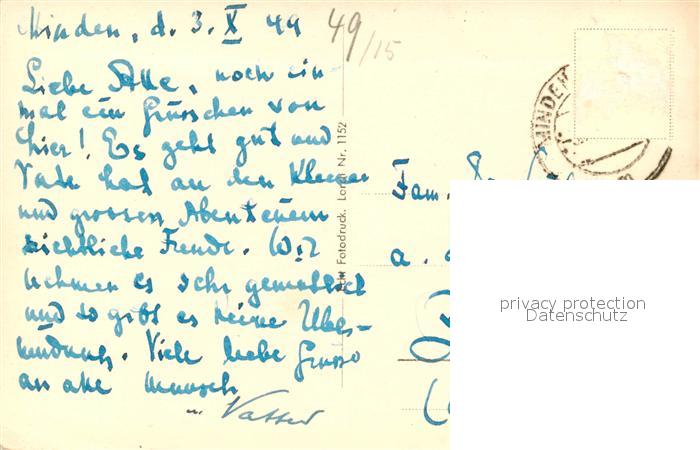 Minden, d. 3. X 49
49/15
Liebe Alle, noch ein-
mal ein Grüsschen von
hier! Es geht gut und
Vater hat an den kleinen
und grossen Abenteuern
sichtliche Freude. Wir
nehmen es sehr gemütlich
und so gibt es keine Über-
müdung. Viele liebe Grüsse
an alle
Echt Fotodruck. Nr. 1152
MINDEN
Fam.
a.
privacy protection
Datenschutz